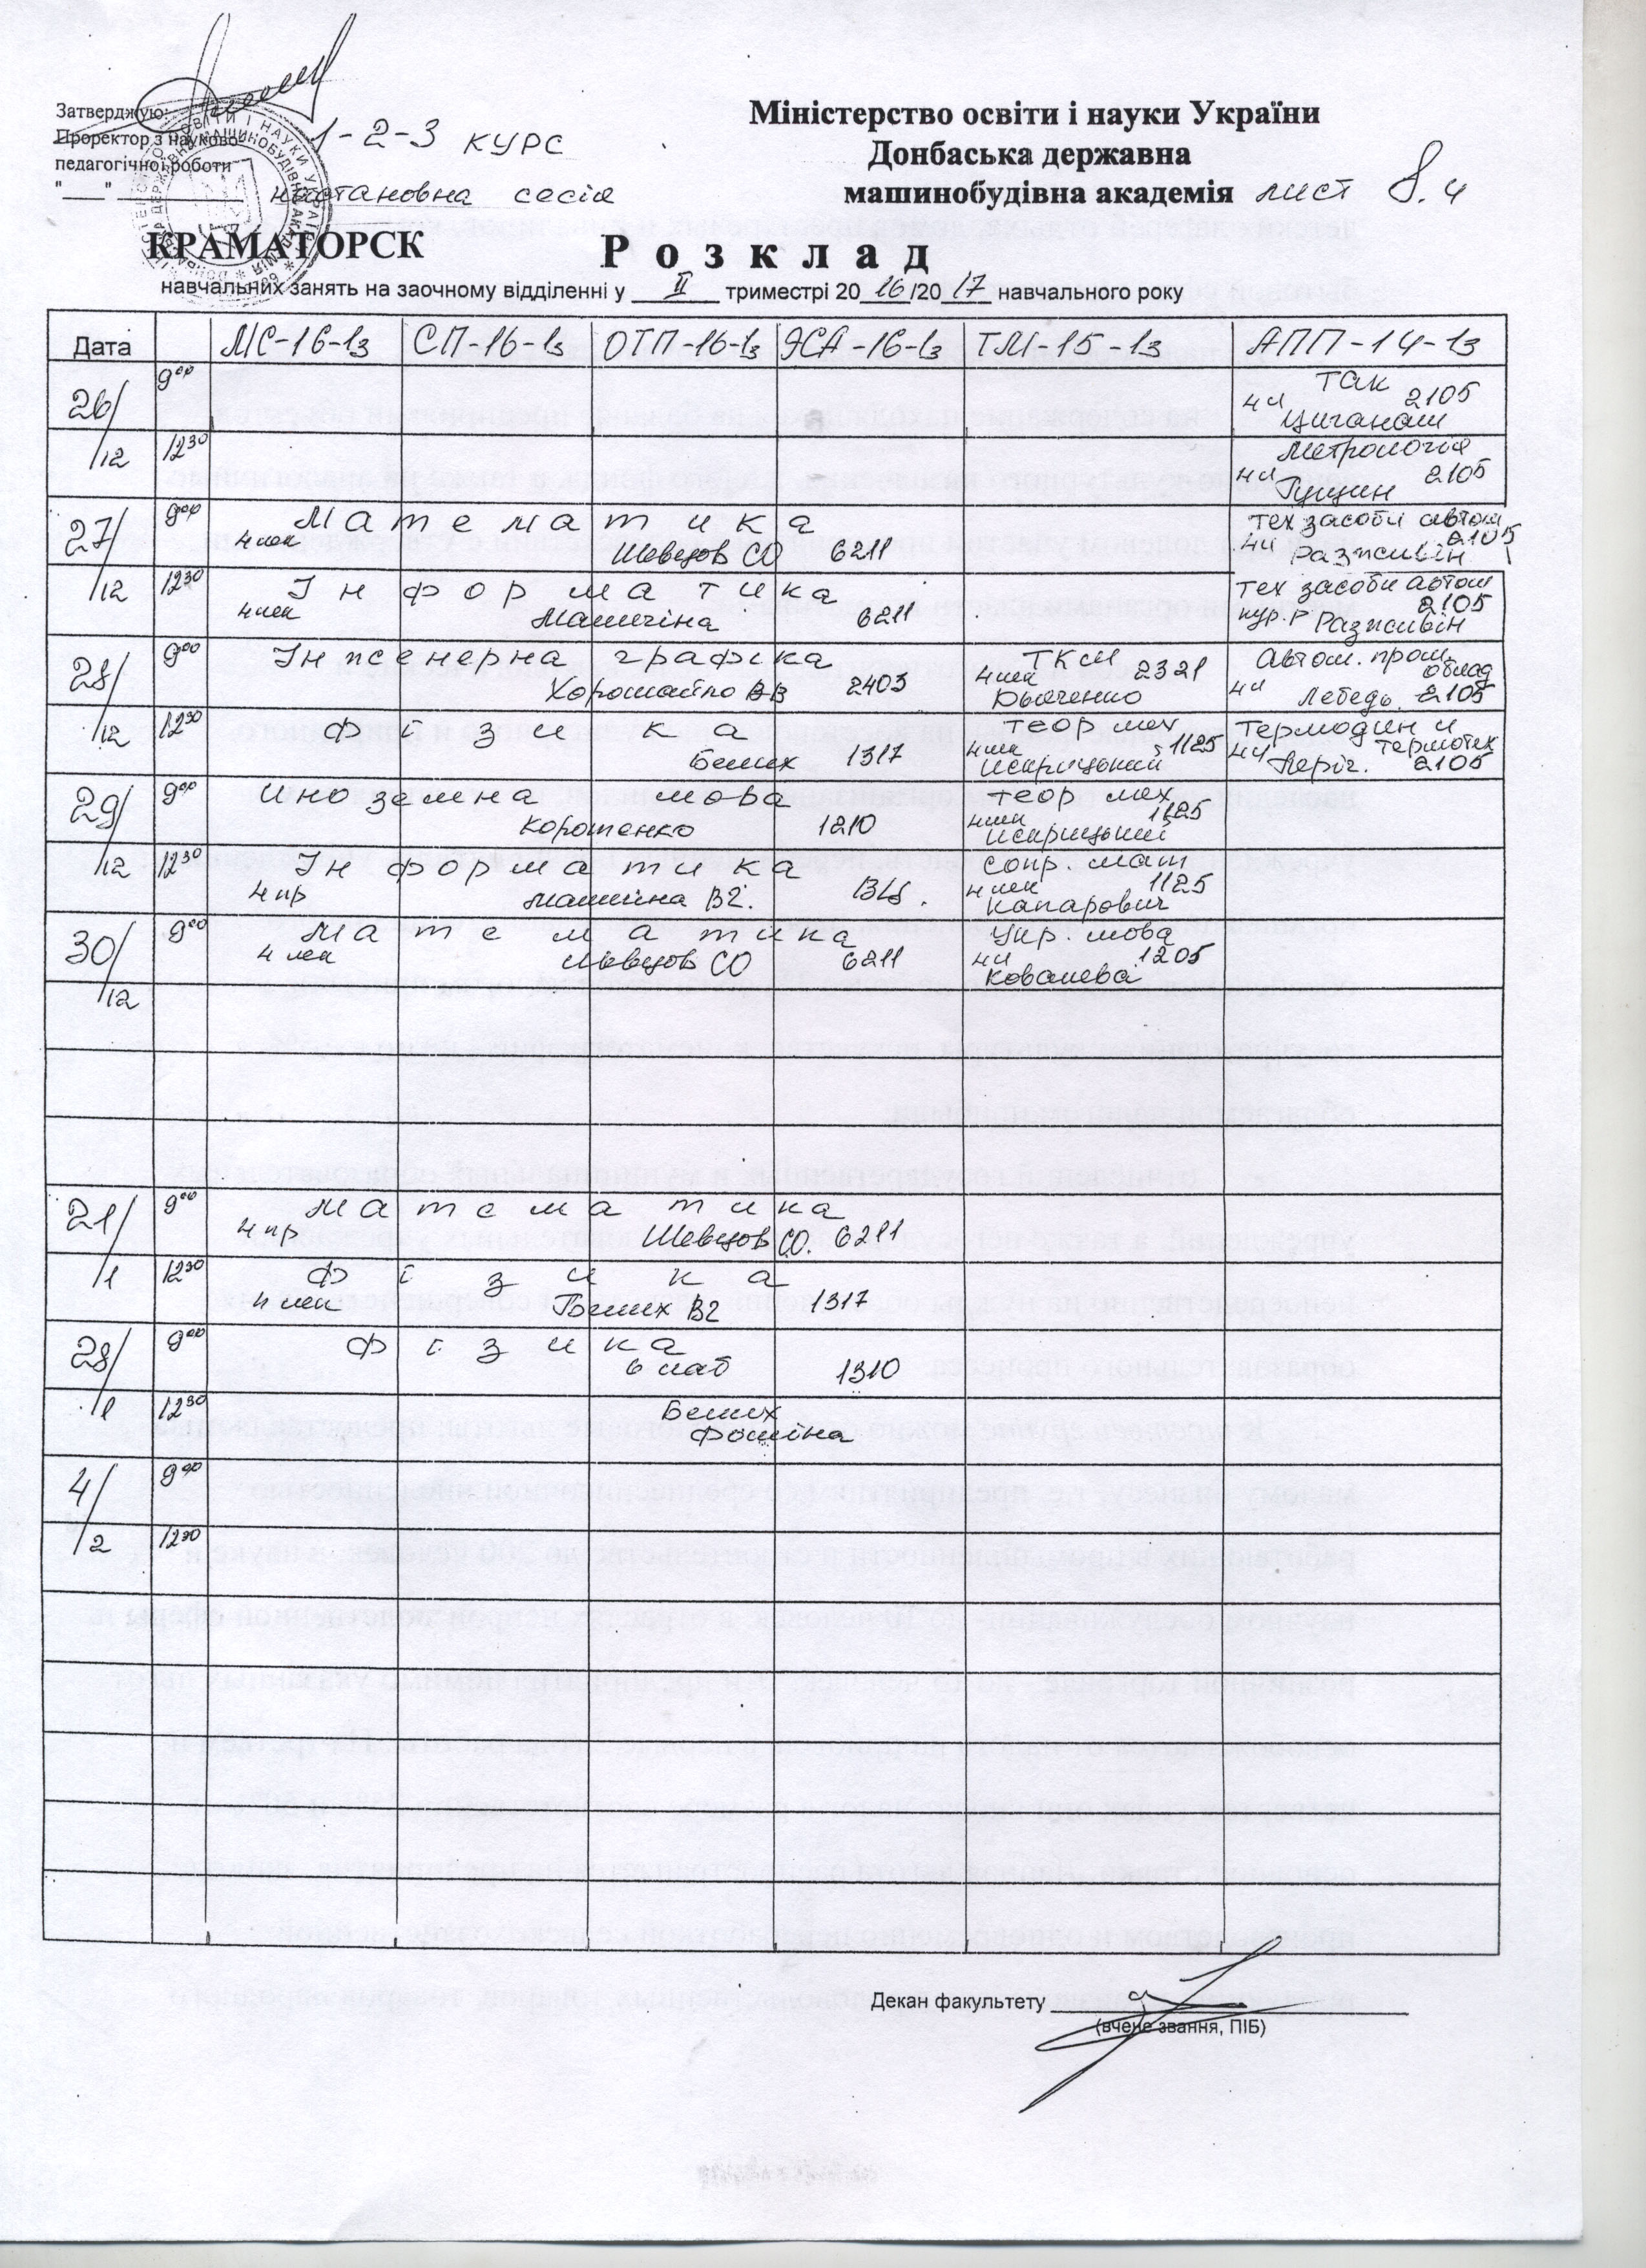 Затверджую:
Проректор з науково-
педагогічної роботи
1-2-3 курс
настановна сесія
КРАМАТОРСК
Міністерство освіти і науки України
Донбаська державна
машинобудівна академія лист 8.4
Розклад
навчальних занять на заочному відділенні у II триместрі 2016/2017 навчального року
Дата МС-16-1з СП-16-1з ОТП-16-1з ЭСА-16-1з ТМ-15-1з АПП-14-1з
26/12 9⁰⁰
ТАК
4л 2105
Циганаш
12³⁰
Метрологія
4л 2105
Гущин
27/12 9⁰⁰ Математика
4 лек Шевцов СО 6211
тех засоби автом
4л 2105
Разживін
12³⁰ Інформатика
4 лек 6211
тех засоби автом
кур.р 2105
Разживін
28/12 9⁰⁰ Інженерна графіка
2403
ТКМ
4 лек 2321
Дьяченко
Автом. пром.
облад
4л Лебедь 2105
12³⁰ Фізика
1317
теор мех
4 лек 1125
Искрицький
Термодин и
4л термотех
2105
29/12 9⁰⁰ Иноземна мова
Коротенко 1210
теор мех
4 лек 1125
Искрицький
12³⁰ Інформатика
4 пр
сопр. мат
4 лек 1125
Капарович
30/12 9⁰⁰ Математика
4 лек Шевцов СО 6211
Укр. мова
4л 1205
Ковалева
21/1 9⁰⁰ Математика
4 пр Шевцов СО. 6211
12³⁰ Фізика
4 лек 1317
28/1 9⁰⁰ Фізика
6 лаб 1310
12³⁰
Фоміна
4/2 9⁰⁰
12³⁰
Декан факультету
(вчене звання, ПІБ)